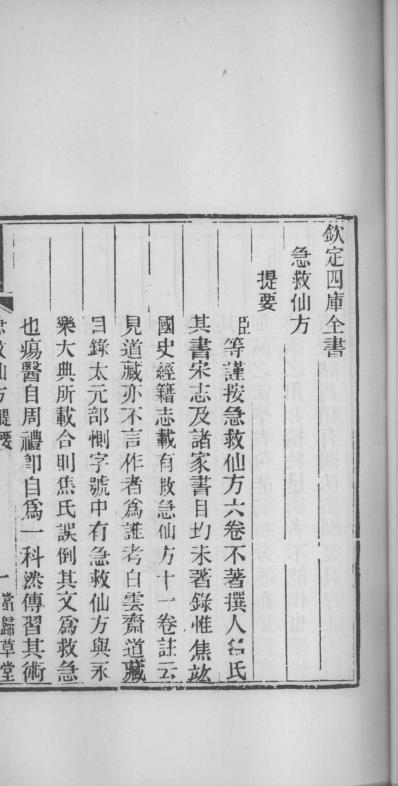 欽定四庫全書
急救仙方
提要
臣等謹按急救仙方六卷不著撰人名氏
其書宋志及諸家書目均未著錄惟焦竑
國史經籍志載有救急仙方十一卷註云
見道藏亦不言作者爲誰考白雲齋道藏
目錄太元部惻字號中有急救仙方與永
樂大典所載合則焦氏誤倒其文爲救急
也瘍醫自周禮卽自爲一科然傳習其術
急救仙方提要
一
當歸草堂